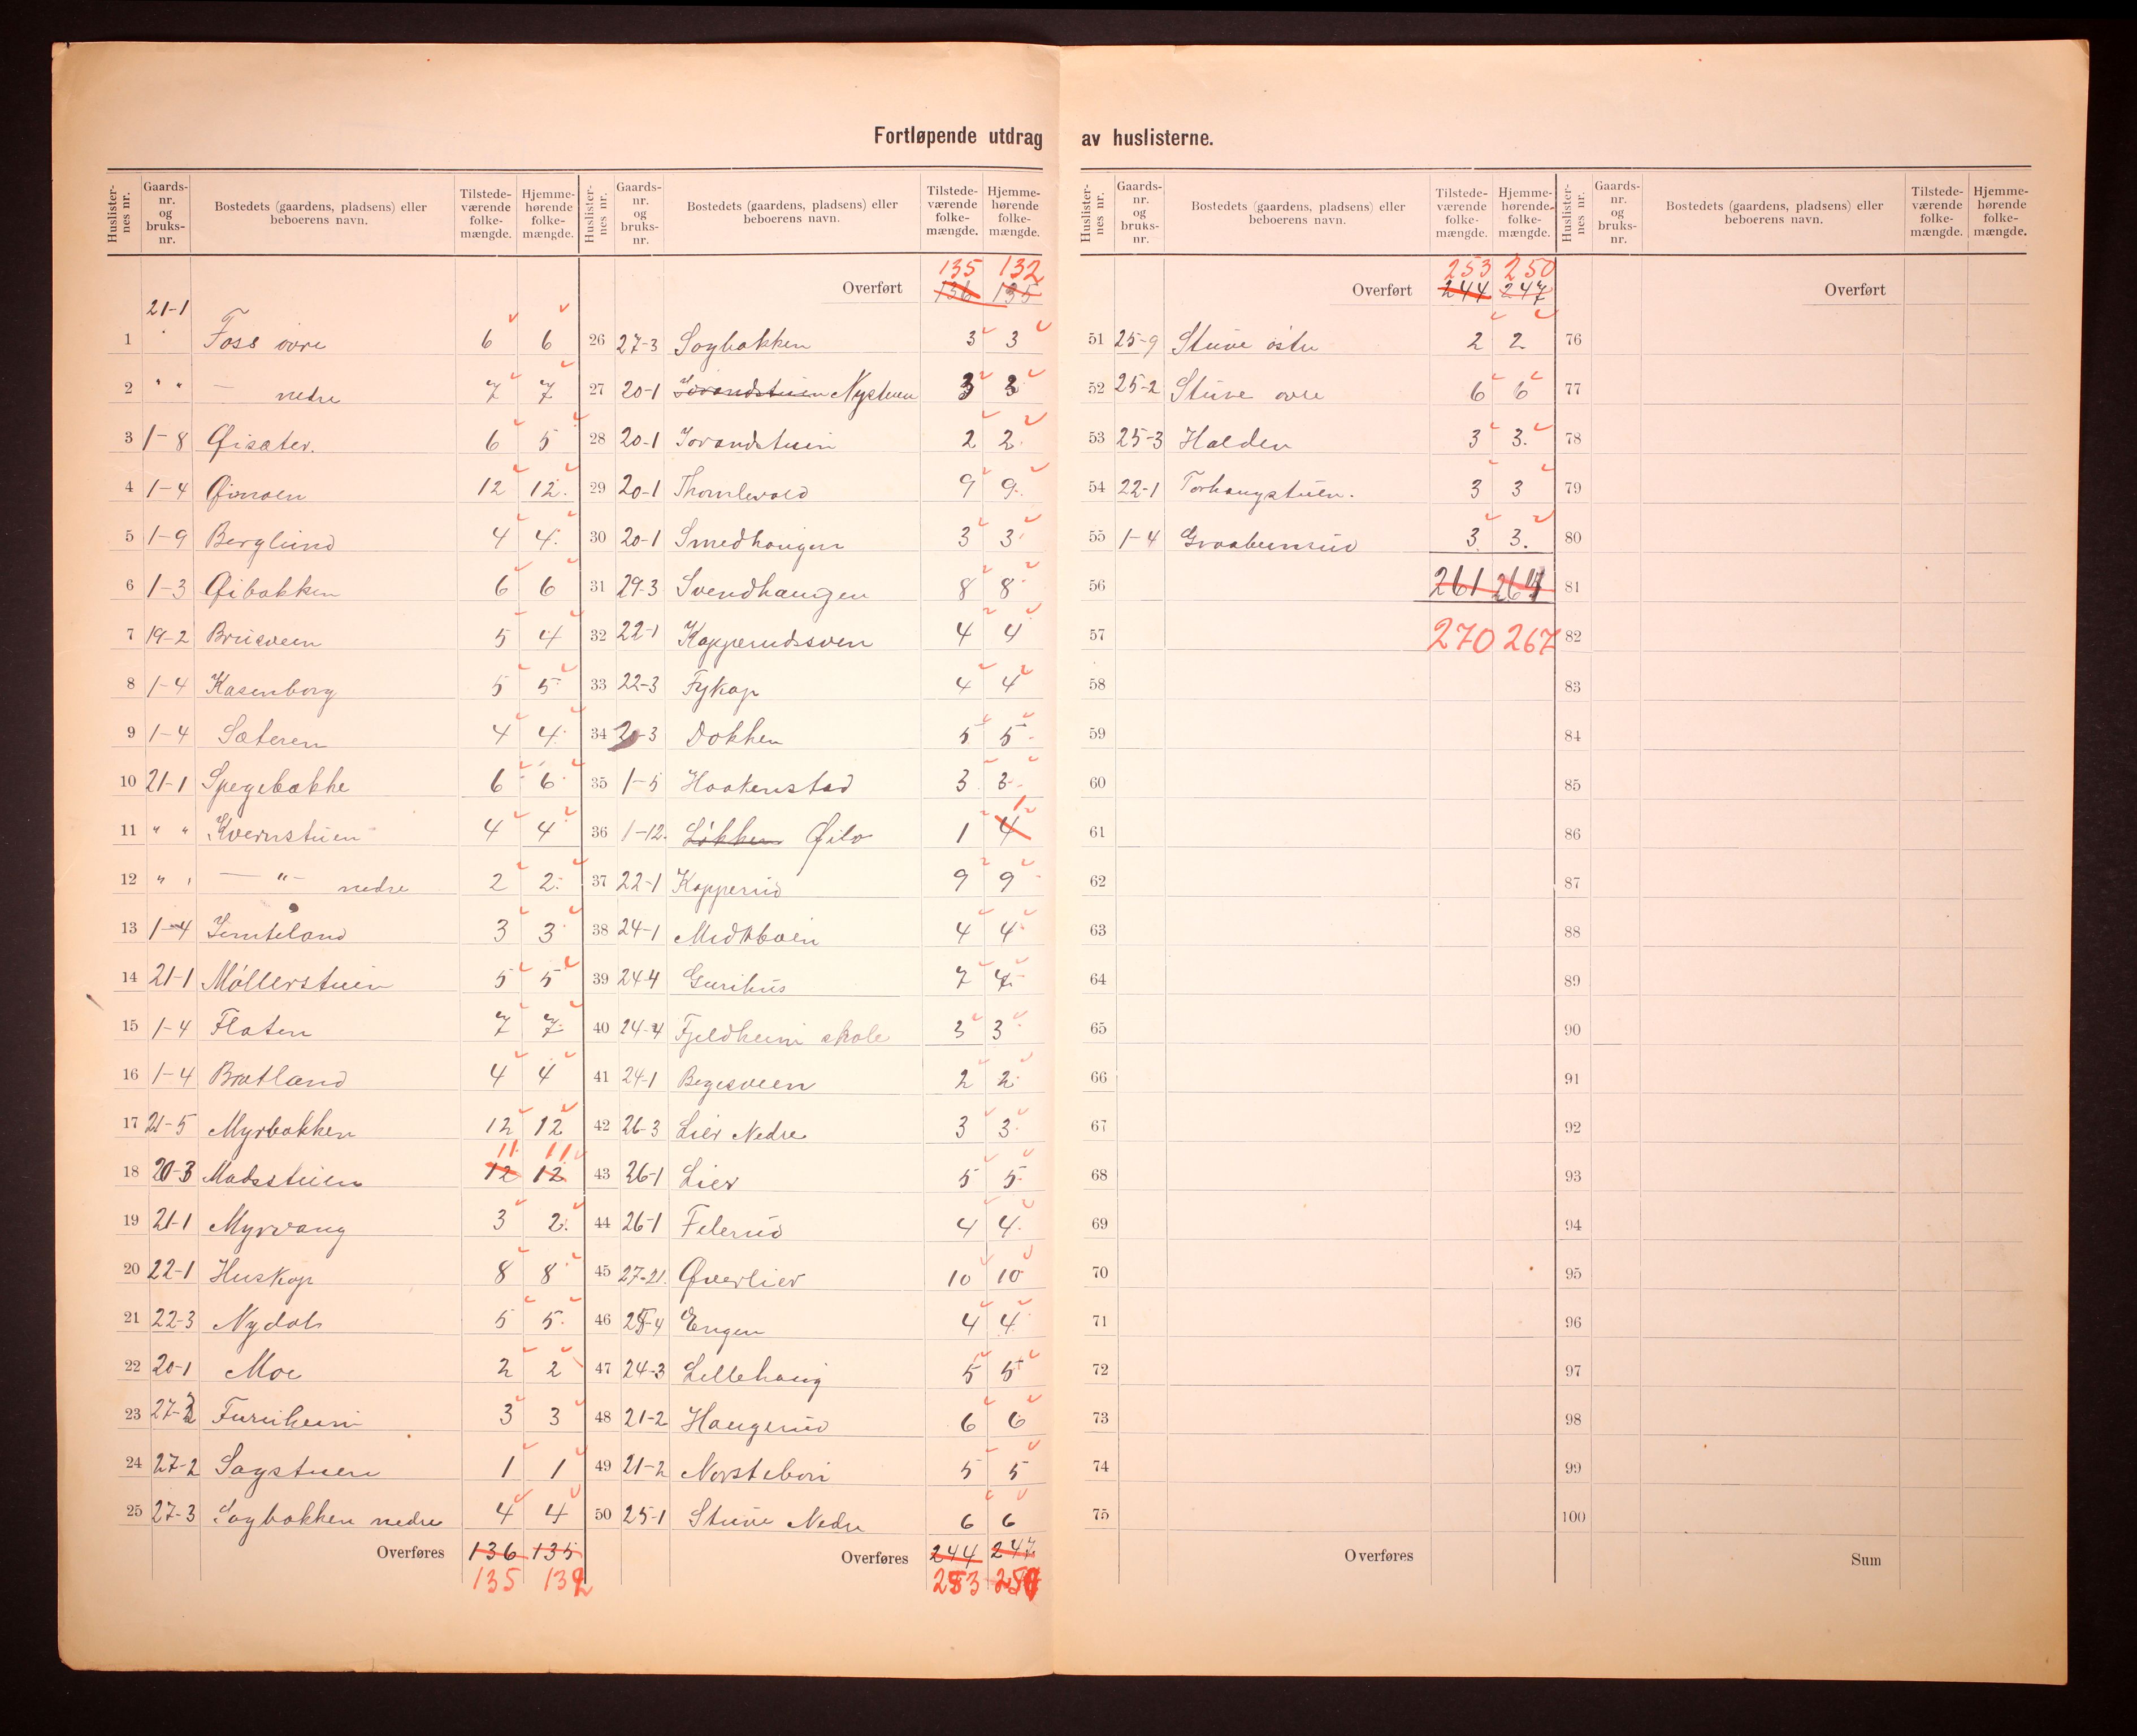 Fortløpende utdrag av huslisterne.
Huslisternes nr. Gaardsnr. og bruksnr. Bostedets (gaardens, pladsens) eller beboerens navn. Tilstedeværende folkemængde. Hjemmehørende folkemængde.
1 21-1 Foss øvre 6 6
2 " " — nedre 7 7
3 1-8 Øisæter. 6 5
4 1-4 Øimoen 12 12.
5 1-9 Berglund 4 4.
6 1-3 Øibakken 6 6
7 19-2 Brusveen 5 4
8 1-4 Kasenborg 5 5
9 1-4 Sæteren 4 4
10 21-1 Spegebakke 6 6
11 " " Kvernstuen 4 4
12 " " — " — nedre 2 2.
13 1-4 Jemteland 3 3
14 21-1 Møllerstuen 5 5
15 1-4 Flaten 7 7.
16 1-4 Bratland 4 4
17 21-5 Myrbakken 12 12
11. 11
18 20-3 Madsstuen 12 12
19 21-1 Myrvang 3 2.
20 22-1 Huskop 8 8
21 22-3 Nydals 5 5.
22 20-1 Moe 2 2
23 27-2 Furuheim 3 3
24 27-2 Sagstuen 1 1
25 27-3 Sagbakken nedre 4 4
Overføres 136 135
135 132
Huslisternes nr. Gaardsnr. og bruksnr. Bostedets (gaardens, pladsens) eller beboerens navn. Tilstedeværende folkemængde. Hjemmehørende folkemængde.
135 132
Overført 136 135
26 27-3 Sagbakken 3 3
27 20-1 Jorandstuen Nystuen 3 3
28 20-1 Jorandstuen 2 2
29 20-1 Thomlevold 9 9.
30 20-1 Smedhaugen 3 3
31 29-3 Svendhaugen 8 8
32 22-1 Kopperudsveen 4 4
33 22-3 Fykop 4 4
34 20-3 Dokken 5 5
35 1-5 Haakenstad 3 3
1
36 1-12. Løkken Øilo 1 4
37 22-1 Kopperud 9 9
38 24-1 Midtbøen 4 4
39 24-4 Gurihus 7 7
40 24-4 Fjeldheim skole 3 3
41 24-1 Begesveen 2 2
42 26-3 Lier Nedre 3 3
43 26-1 Lier 5 5
44 26-1 Felerud 4 4.
45 27-21. Øverlier 10 10
46 25-4 Engen 4 4
47 24-3 Lillehaug 5 5
48 21-2 Haugerud 6 6
49 21-2 Norstebøn 5 5
50 25-1 Stuve Nedre 6 6
Overføres 244 247
253 250
Huslisternes nr. Gaardsnr. og bruksnr. Bostedets (gaardens, pladsens) eller beboerens navn. Tilstedeværende folkemængde. Hjemmehørende folkemængde.
253 250
Overført 244 247
51 25-9 Stuve østre 2 2
52 25-2 Stuve øvre 6 6
53 25-3 Halden 3 3.
54 22-1 Torhaugstuen. 3 3
55 1-4 Graabeinrud 3 3.
56 261 264
57 270 267
58
59
60
61
62
63
64
65
66
67
68
69
70
71
72
73
74
75
Overføres
Huslisternes nr. Gaardsnr. og bruksnr. Bostedets (gaardens, pladsens) eller beboerens navn. Tilstedeværende folkemængde. Hjemmehørende folkemængde.
Overført
76
77
78
79
80
81
82
83
84
85
86
87
88
89
90
91
92
93
94
95
96
97
98
99
100
Sum